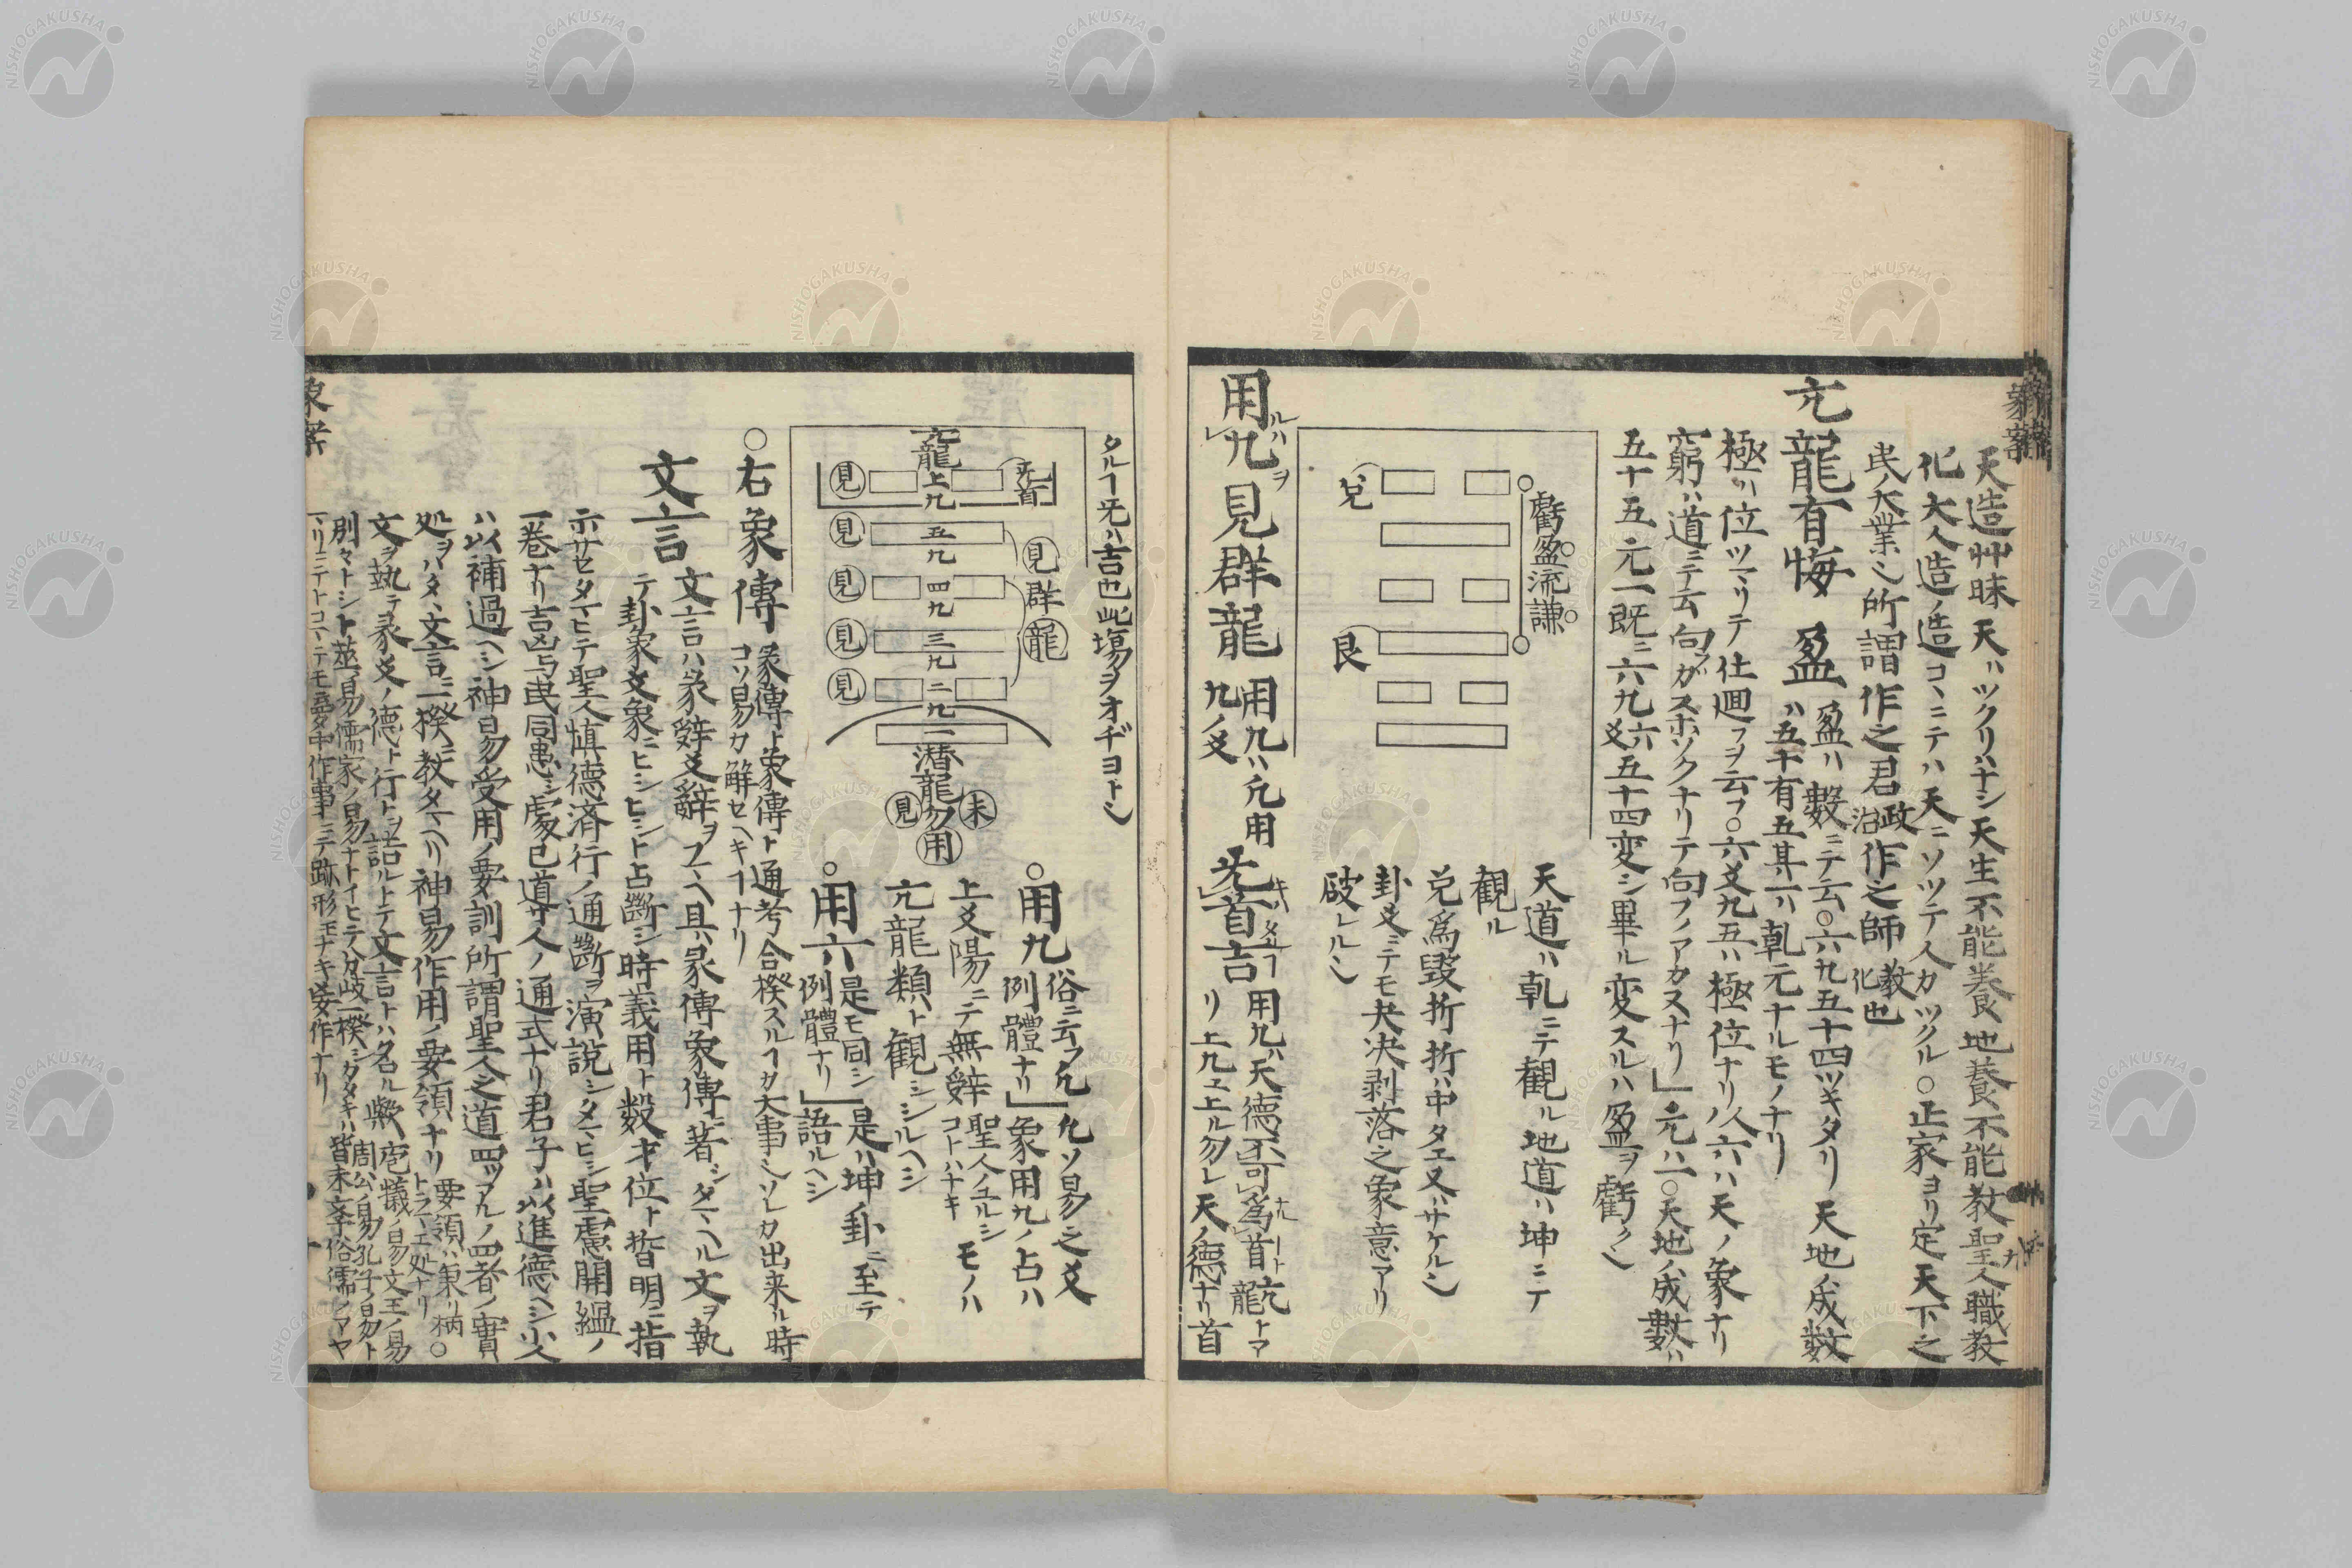 天造艸昧 天ハツクリハナシ天生不能養地養不能教聖人職教
化大人造ノ造コヽニテハ天ニソツテ人カツクル○正家ヨリ定天下之
民ノ大業シ所謂作之君政治作之師教化也
亢龍有悔 盈 盈ハ數ニテ云○六九五十四ツキタリ天地ノ成数
ハ五十有五其一ハ乾元ナルモノナリ
極ハ位ツマリテ仕廻フヲ云フ○六爻九五ハ極位ナリ八六ハ天ノ象ナリ
窮ハ道ニテ云向ガスホツクナリテ向フノアカヌナリ」元ハ一○天地ノ成數ハ
五十五元一既ニ六九六爻五十四変シ畢ル変スルハ盈ヲ虧クシ
虧盈流謙
兌
艮
天道ハ乾ニテ観ル地道ハ坤ニテ
観ル
兌爲毀折折ハ中タエ又ハサケルシ
卦爻ニテモ夬决剥落之象意アリ
破レルシ
用ルハ九ヲ見群龍 用九ハ凡用
九ノ爻
无首吉 用九ハ天德不可爲首亢龍トマ
リ上九エ上ル勿レ天ノ德ナリ首
タルヿ无ハ吉也此塲ヲオヂヨトシ
亢龍
上九
无首
五九
四九
三九
二九
一
潜龍勿用
見
見
見
見
見
見群龍
見
未
○用九 俗ニ云フ凡例體ナリ」凡ソ易之爻
象用九ノ占ハ
上爻陽ニテ無辭 聖人ノユルシコトハナキ モノハ
亢龍類ト観シシルヘシ
○用六 是モ同シ例體ナリ」是ハ坤卦ニ至テ
語ルヘシ
○右象傳 彖傳ト象傳ト通考合揆スルヿカ大事シソレカ出来ル時
コソ易カ解セヘキヿナリ
文言 文言ハ彖辭爻辭ヲフマヘ且ハ彖傳象傳ニ著シタマヘル文ヲ執
テ卦象爻象ニヒシヒシト占斷シ時義用ト數才位ト皆明ニ指
示サセタマヒテ聖人慎德済行ノ通斷ヲ演説シタマヒシ聖慮開縕ノ
一巻ナリ吉凶与民同患シ處已道サ人ノ通式ナリ君子ハ以進德ヘシ小人
ハ以補過ヘシ神易受用ノ要訓所謂聖人之道四ツアルノ四者ノ實
処ヲハタヽ文言ニ一揆ニ教タマヘリ神易作用ノ要領ナリ 要領ハ東リ柄○トラマエ処ナリ
文ヲ執テ彖爻ノ德ト行トヲ語ルトテ文言トハ名ル歟 庖犠ノ易文王ノ易
周公ノ易孔子ノ易ト
別々トシト茲易儒家ノ易ナトイヒテ